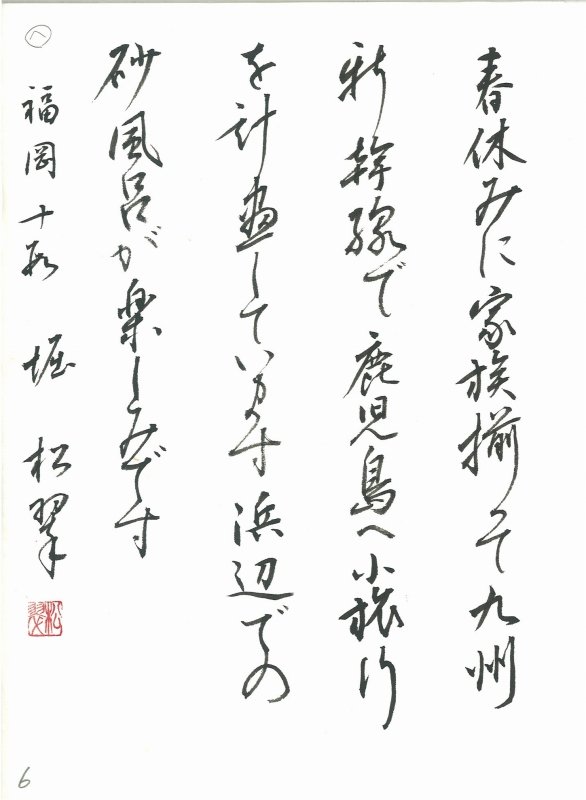 春休みに家族揃って九州
新幹線で鹿児島へ小旅行
を計画しています浜辺での
砂風呂が楽しみです
福岡 十段 堀 松翠
へ
松翠
6